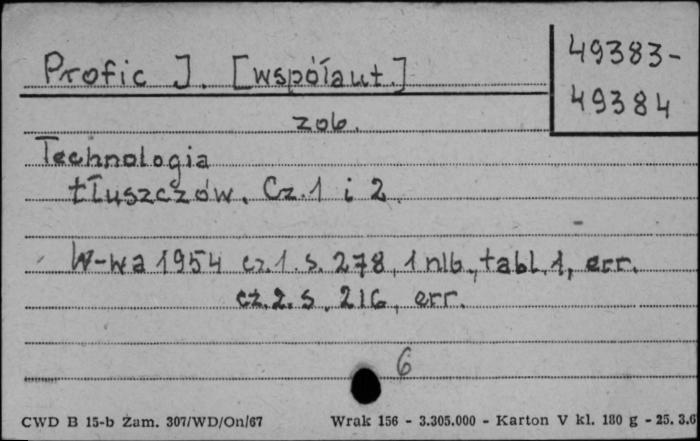 Profic J. [współaut.]
49383-
49384
zob.
Technologia
tłuszczów. Cz. 1 i 2.
W-wa 1954 cz. 1. s. 278, 1 nlb., tabl. 1, err.
cz. 2. s. 216, err.
6
CWD B 15-b Zam. 307/WD/On/67
Wrak 156 - 3.305.000 - Karton V kl. 180 g - 25. 3.6